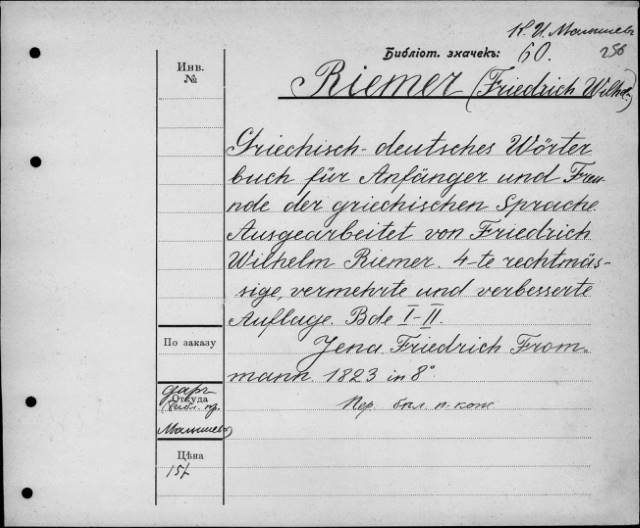 К. И. Малышевъ
Библіот. значекъ: 60. 256
Инв.
№
Riemer (Friedrich Wilh.)
Griechisch-deutsches Wörter
buch für Anfänger und Freu-
nde der griechischen Sprache.
Ausgearbeitet von Friedrich
Wilhelm Riemer. 4-te rechtmäs-
sige, vermehrte und verbesserte
Auflage. Bde I-II.
По заказу
Jena. Friedrich From-
mann. 1823 in 8°
даръ
Откуда
Пер. был. п. кож.
Малышевъ
Цѣна